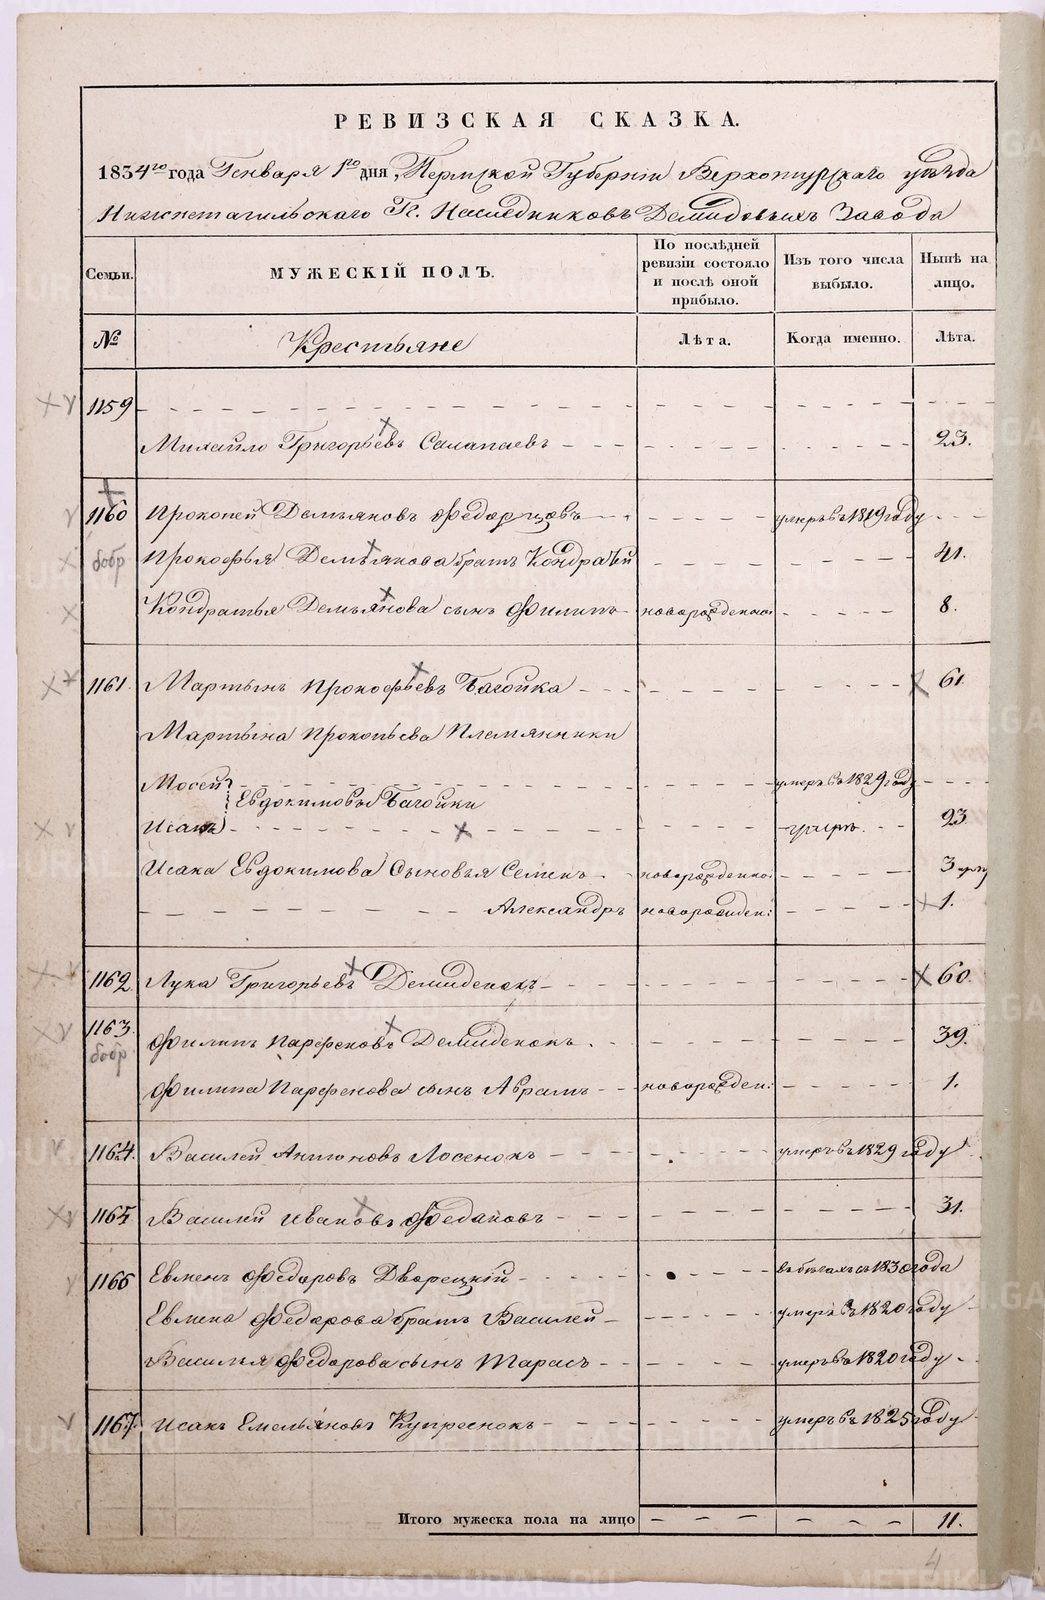 РЕВИЗСКАЯ СКАЗКА.
1834го года Генваря 1го дня, Пермской Губернiи Верхотурскаго уѣзда
Нижнетагильскаго Г. Наследниковъ Демидовыхъ Завода
Семьи. МУЖЕСКІЙ ПОЛЪ. По послѣдней ревизіи состояло и послѣ оной прибыло. Изъ того числа выбыло. Нынѣ на лицо.
№ Крестьяне Лѣта. Когда именно. Лѣта.
1159
Михайло Григорьевъ Салапаевъ 23.
1160 Прокопей Демьяновъ умеръ въ 1819 году
бобр Прокофья Демьянова братъ Кондратiй 41.
Кондратья Демьянова сынъ Филипъ новорожденно. 8.
1161. Мартынъ Прокофьевъ Багойка 61
Мартына Прокопьева Племянники
Мосей умеръ въ 1829 году
Евдокимовы Багойки
Исакъ 23
Исака Евдокимова Сыновья Семенъ новорожденно. 3
Александръ новорожден: 1.
1162. Лука Григорьевъ Демиденокъ 60.
1163. Филипъ Парфеновъ Демиденокъ. 39.
бобр
Филипа Парфенова сынъ Абрамъ новорожден: 1.
1164. Василей Антоновъ Лосенокъ умеръ въ 1829 году
1165 Василей Ивановъ 31.
1166 Евменъ Федоровъ Дворецкiй въ бегахъ съ 1830 года
Евмена Федорова братъ Василей умеръ въ 1820 году
Василья Федорова сынъ Тарасъ умеръ въ 1820 году
1167. Исакъ Емельяновъ Купреенокъ умеръ въ 1825 году
Итого мужеска пола на лицо 11.
4
METRIKI.GASO-URAL.RU